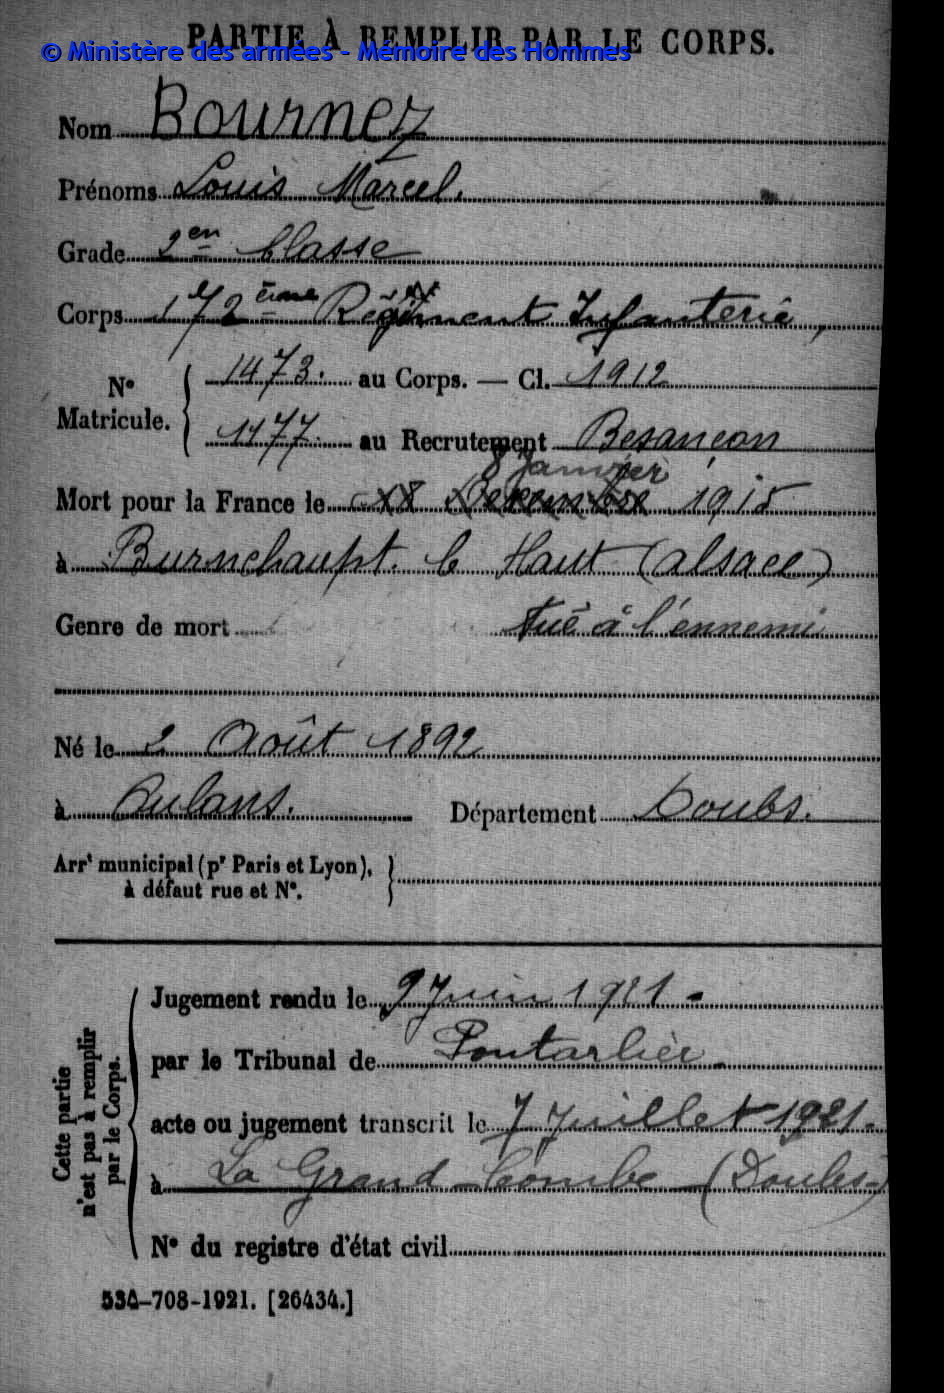 PARTIE À REMPLIR PAR LE CORPS.
© Ministère des armées - Mémoire des Hommes
Nom Bournez
Prénoms Louis Marcel.
Grade 2en Classe
Corps 172ème Régiment Infanterie,
N° Matricule. { 1473. au Corps. — Cl. 1912
1177. au Recrutement Besançon
8 Janvier
Mort pour la France le 1915
à Burnchaupt. le Haut (alsace)
Genre de mort Tué à l'ennemi
Né le 2 Août 1892
à Aulans. Département Doubs.
Arrt municipal (pr Paris et Lyon),
à défaut rue et N°.
Cette partie
n'est pas à remplir
par le Corps.
Jugement rendu le 9 Juin 1921.
par le Tribunal de Pontarlier.
acte ou jugement transcrit le 7 Juillet 1921.
à La Grand Combe (Doubs)
N° du registre d'état civil
534-708-1921. [26434.]